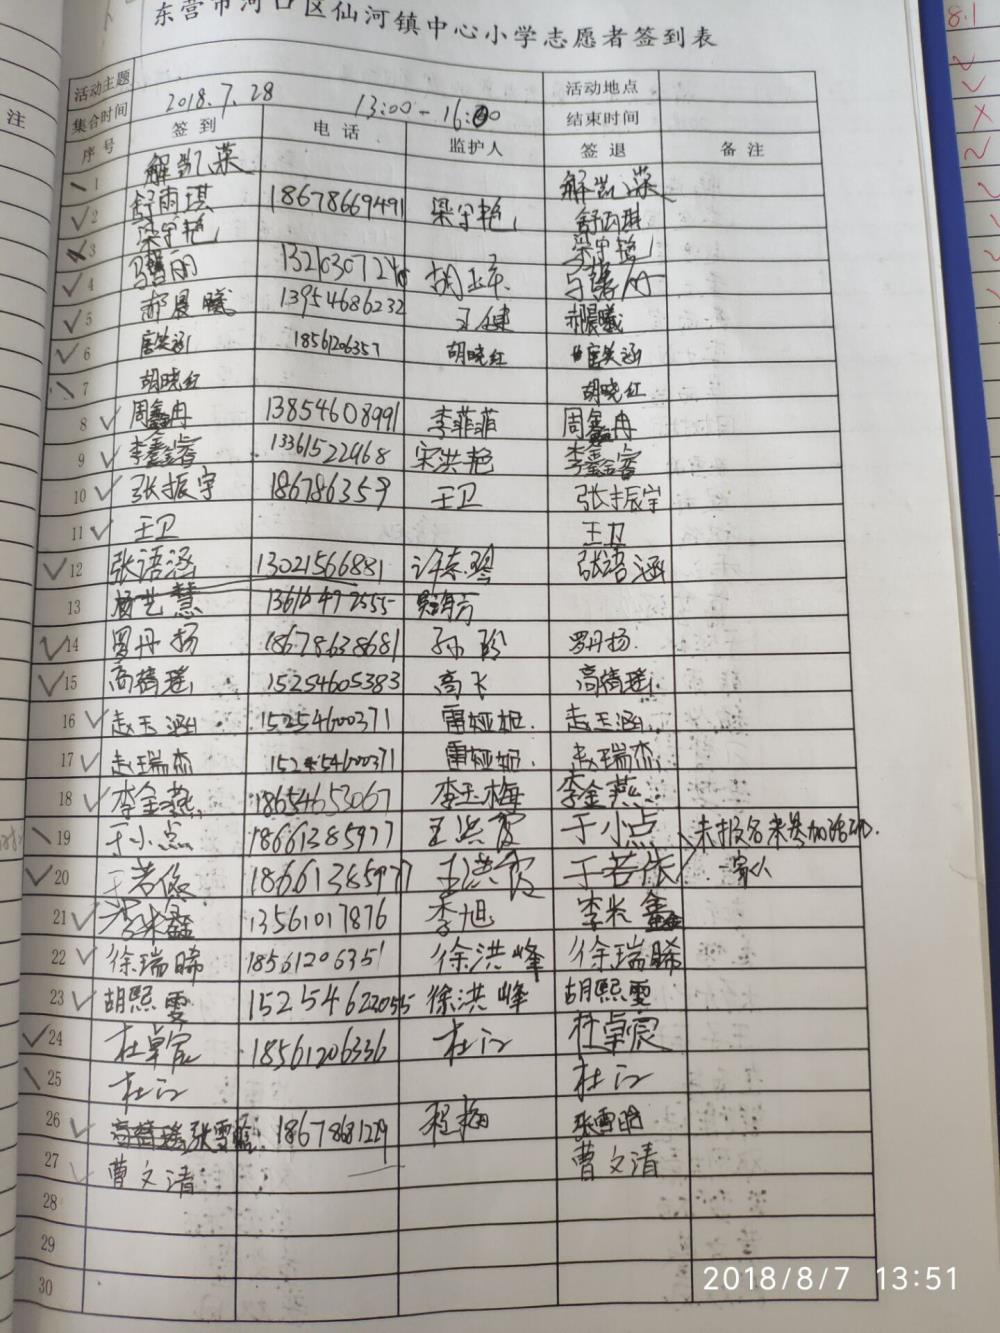 东营市河口区仙河镇中心小学志愿者签到表
活动主题 活动地点
集合时间 2018.7.28 13:00-16:00 结束时间
序号 签到 电话 监护人 签退 备注
1 解凯莱 解凯莱
2 舒雨琪 18678669491 梁宇艳 舒雨琪
3 梁宇艳 梁宇艳
4
5 郝晨曦 13954686232 王健 郝晨曦
6 18561206357 胡晓红
7 胡晓红 胡晓红
8 周鑫冉 13854608991 李菲菲 周鑫冉
9 李鑫睿 13361522468 宋洪艳 李鑫睿
10 张振宇 186786359 王卫 张振宇
11 王卫 王卫
12 张语涵 13021566881 张语涵
13 杨艺慧
14 罗丹扬 18678638681 孙玲 罗丹扬
15 高精瑶 15254605383 高飞 高精瑶
16 赵玉涵 15254600371 雷娅妮 赵玉涵
17 赵瑞杰 雷娅妮 赵瑞杰
18 李金燕 18654653067 李玉梅 李金燕
19 于小点 18661385977 王洪霞 于小点 未报名来参加活动
20 于若依 18661385977 王洪霞 于若依 家人
21 李米鑫 13561017876 李旭 李米鑫
22 徐瑞晞 18561206351 徐洪峰 徐瑞晞
23 胡熙雯 徐洪峰 胡熙雯
24 杜卓宸 18561206336 杜江 杜卓宸
25 杜江 杜江
26 张雪晗 18678681229 程梅 张雪晗
27 曹文清 曹文清
28
29
30
2018/8/7 13:51
注
8.1